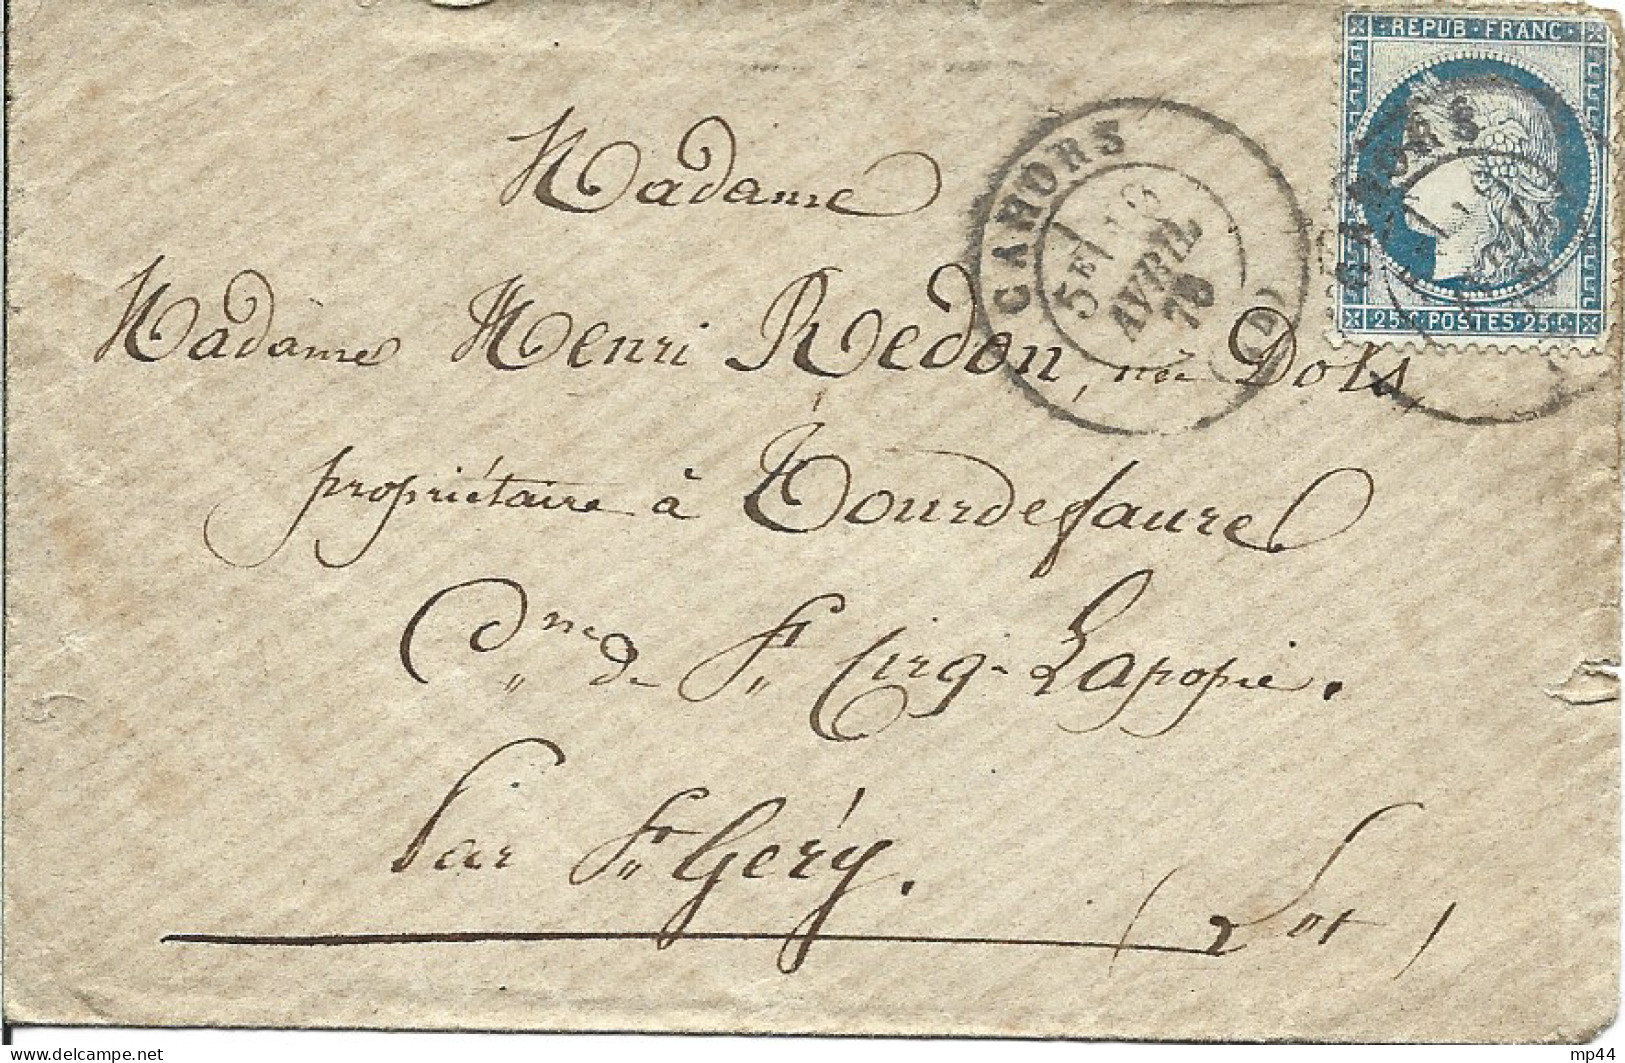 REPUB·FRANC·
25·C·POSTES·25·C·
CAHORS
5E
AVRIL
(D)
CAHORS
Madame
Madame Henri Redon, née Dols,
propriétaire à Tourdefaure
Cne de St Cirq-Lapopie.
Par St Géry.
(Lot)
delcampe.net
mp44